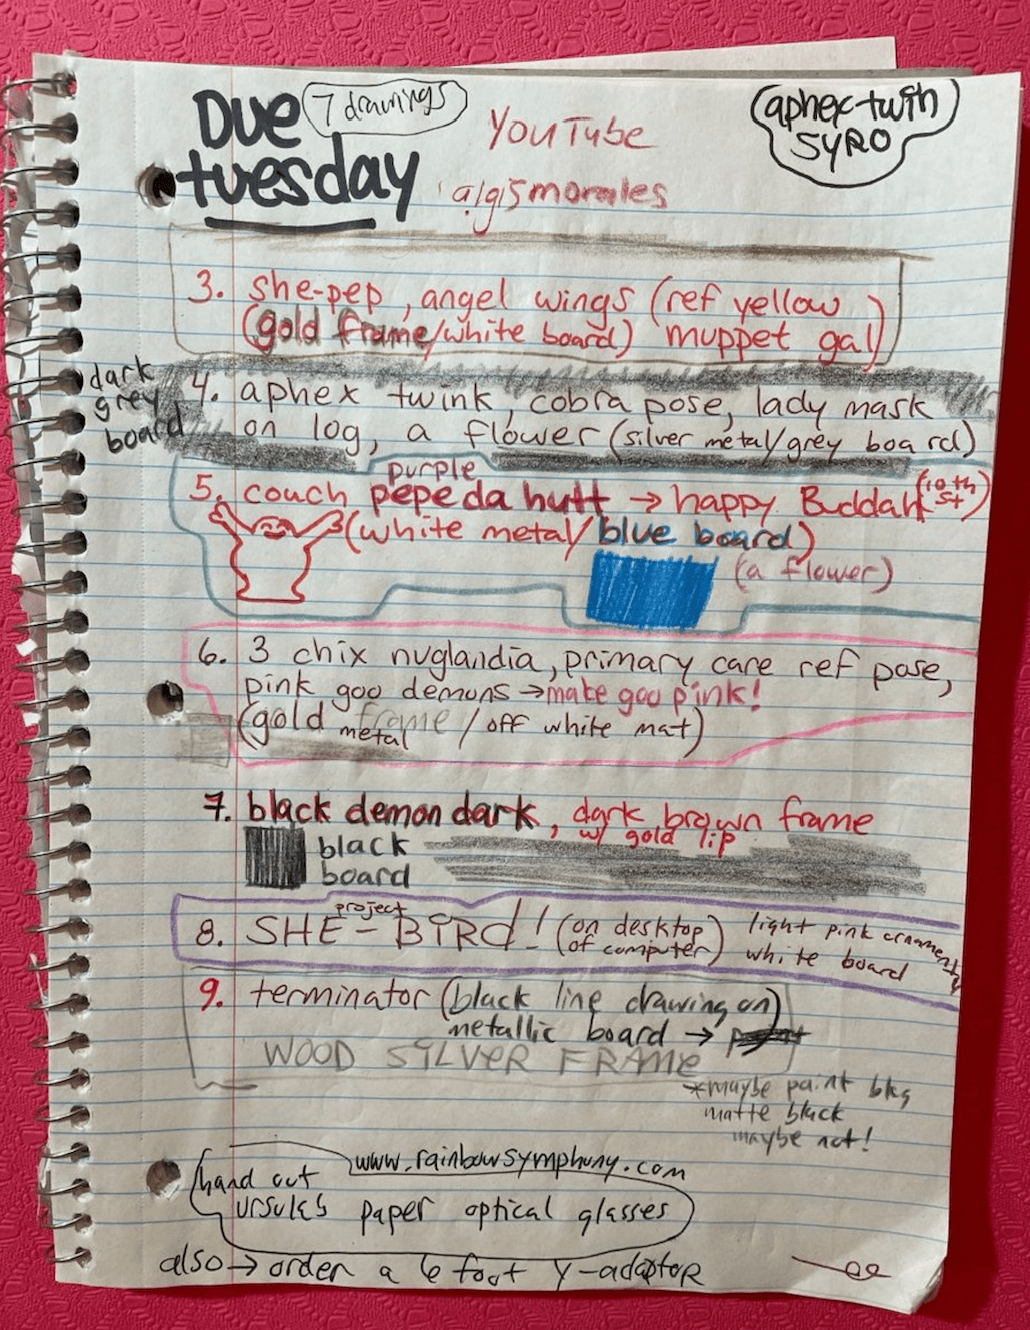 DUE
7 drawings
tuesday
YouTube
a/g/5morales
aphex twin
SYRO
3. she-pep, angel wings (ref yellow
(gold frame/white board) muppet gal)
dark
grey
board
4. aphex twink, cobra pose, lady mask
on log, a flower (silver metal/grey board)
purple
5. couch pepe da hutt → happy Buddah (10th
st)
(white metal/blue board)
(a flower)
6. 3 chix nuglandia, primary care ref pose,
pink goo demons → make goo pink!
(gold frame / off white mat)
metal
7. black demon dark, dark brown frame
w/ gold lip
black
board
project
8. SHE-BIRD! (on desktop
of computer)
light pink ornamenty
white board
9. terminator (black line drawing on)
metallic board →
WOOD SILVER FRAME
*maybe paint bkg
matte black
maybe not!
www.rainbowsymphony.com
hand out
ursula's paper optical glasses
also → order a 6 foot y-adaptor